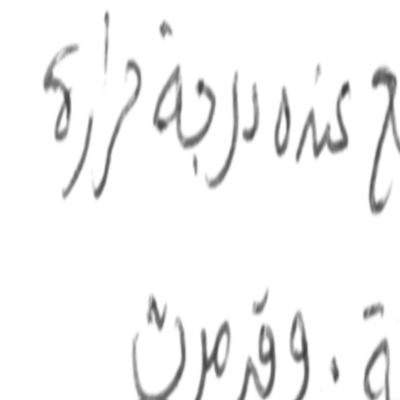 عنده درجة حرارة
وقد مرت